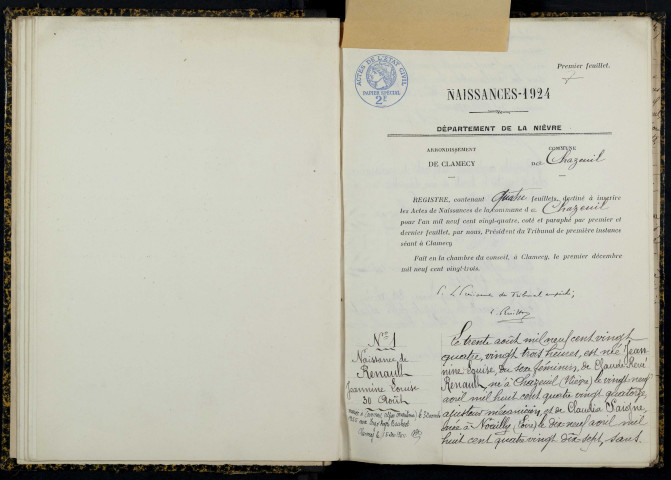 Premier feuillet.
ACTES DE L'ETAT CIVIL
PAPIER SPÉCIAL
2F
NAISSANCES-1924
DÉPARTEMENT DE LA NIÈVRE
ARRONDISSEMENT
DE CLAMECY
COMMUNE
DE Chazeuil
REGISTRE, contenant quatre feuillets, destiné à inscrire
les Actes de Naissances de la commune d e Chazeuil
pour l'an mil neuf cent vingt-quatre, coté et paraphé par premier et
dernier feuillet, par nous, Président du Tribunal de première instance
séant à Clamecy
Fait en la chambre du conseil, à Clamecy, le premier décembre
mil neuf cent vingt-trois.
Nº 1
Naissance de
RENAULT
Jeannine Louise
30 Août
Le trente août mil neuf cent vingt
quatre, vingt trois heures, est née Jean-
nine Louise, du sexe féminin, de Claude René
Renault, né à Chazeuil (Nièvre) le vingt neuf
avril mil huit cent quatre vingt quatorze,
ajusteur mécanicien, et de Claudia
née à Noailly (Loire) le dix neuf avril mil
huit cent quatre vingt dix sept, sans